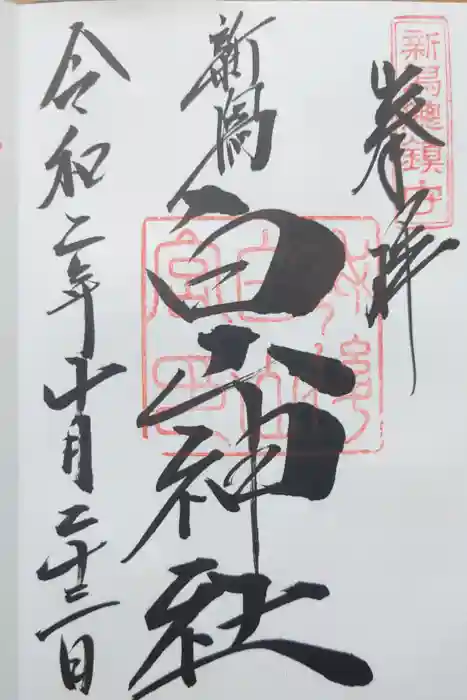 新潟總鎮守
奉拝
新潟
白山神社
令和二年十月二十三日